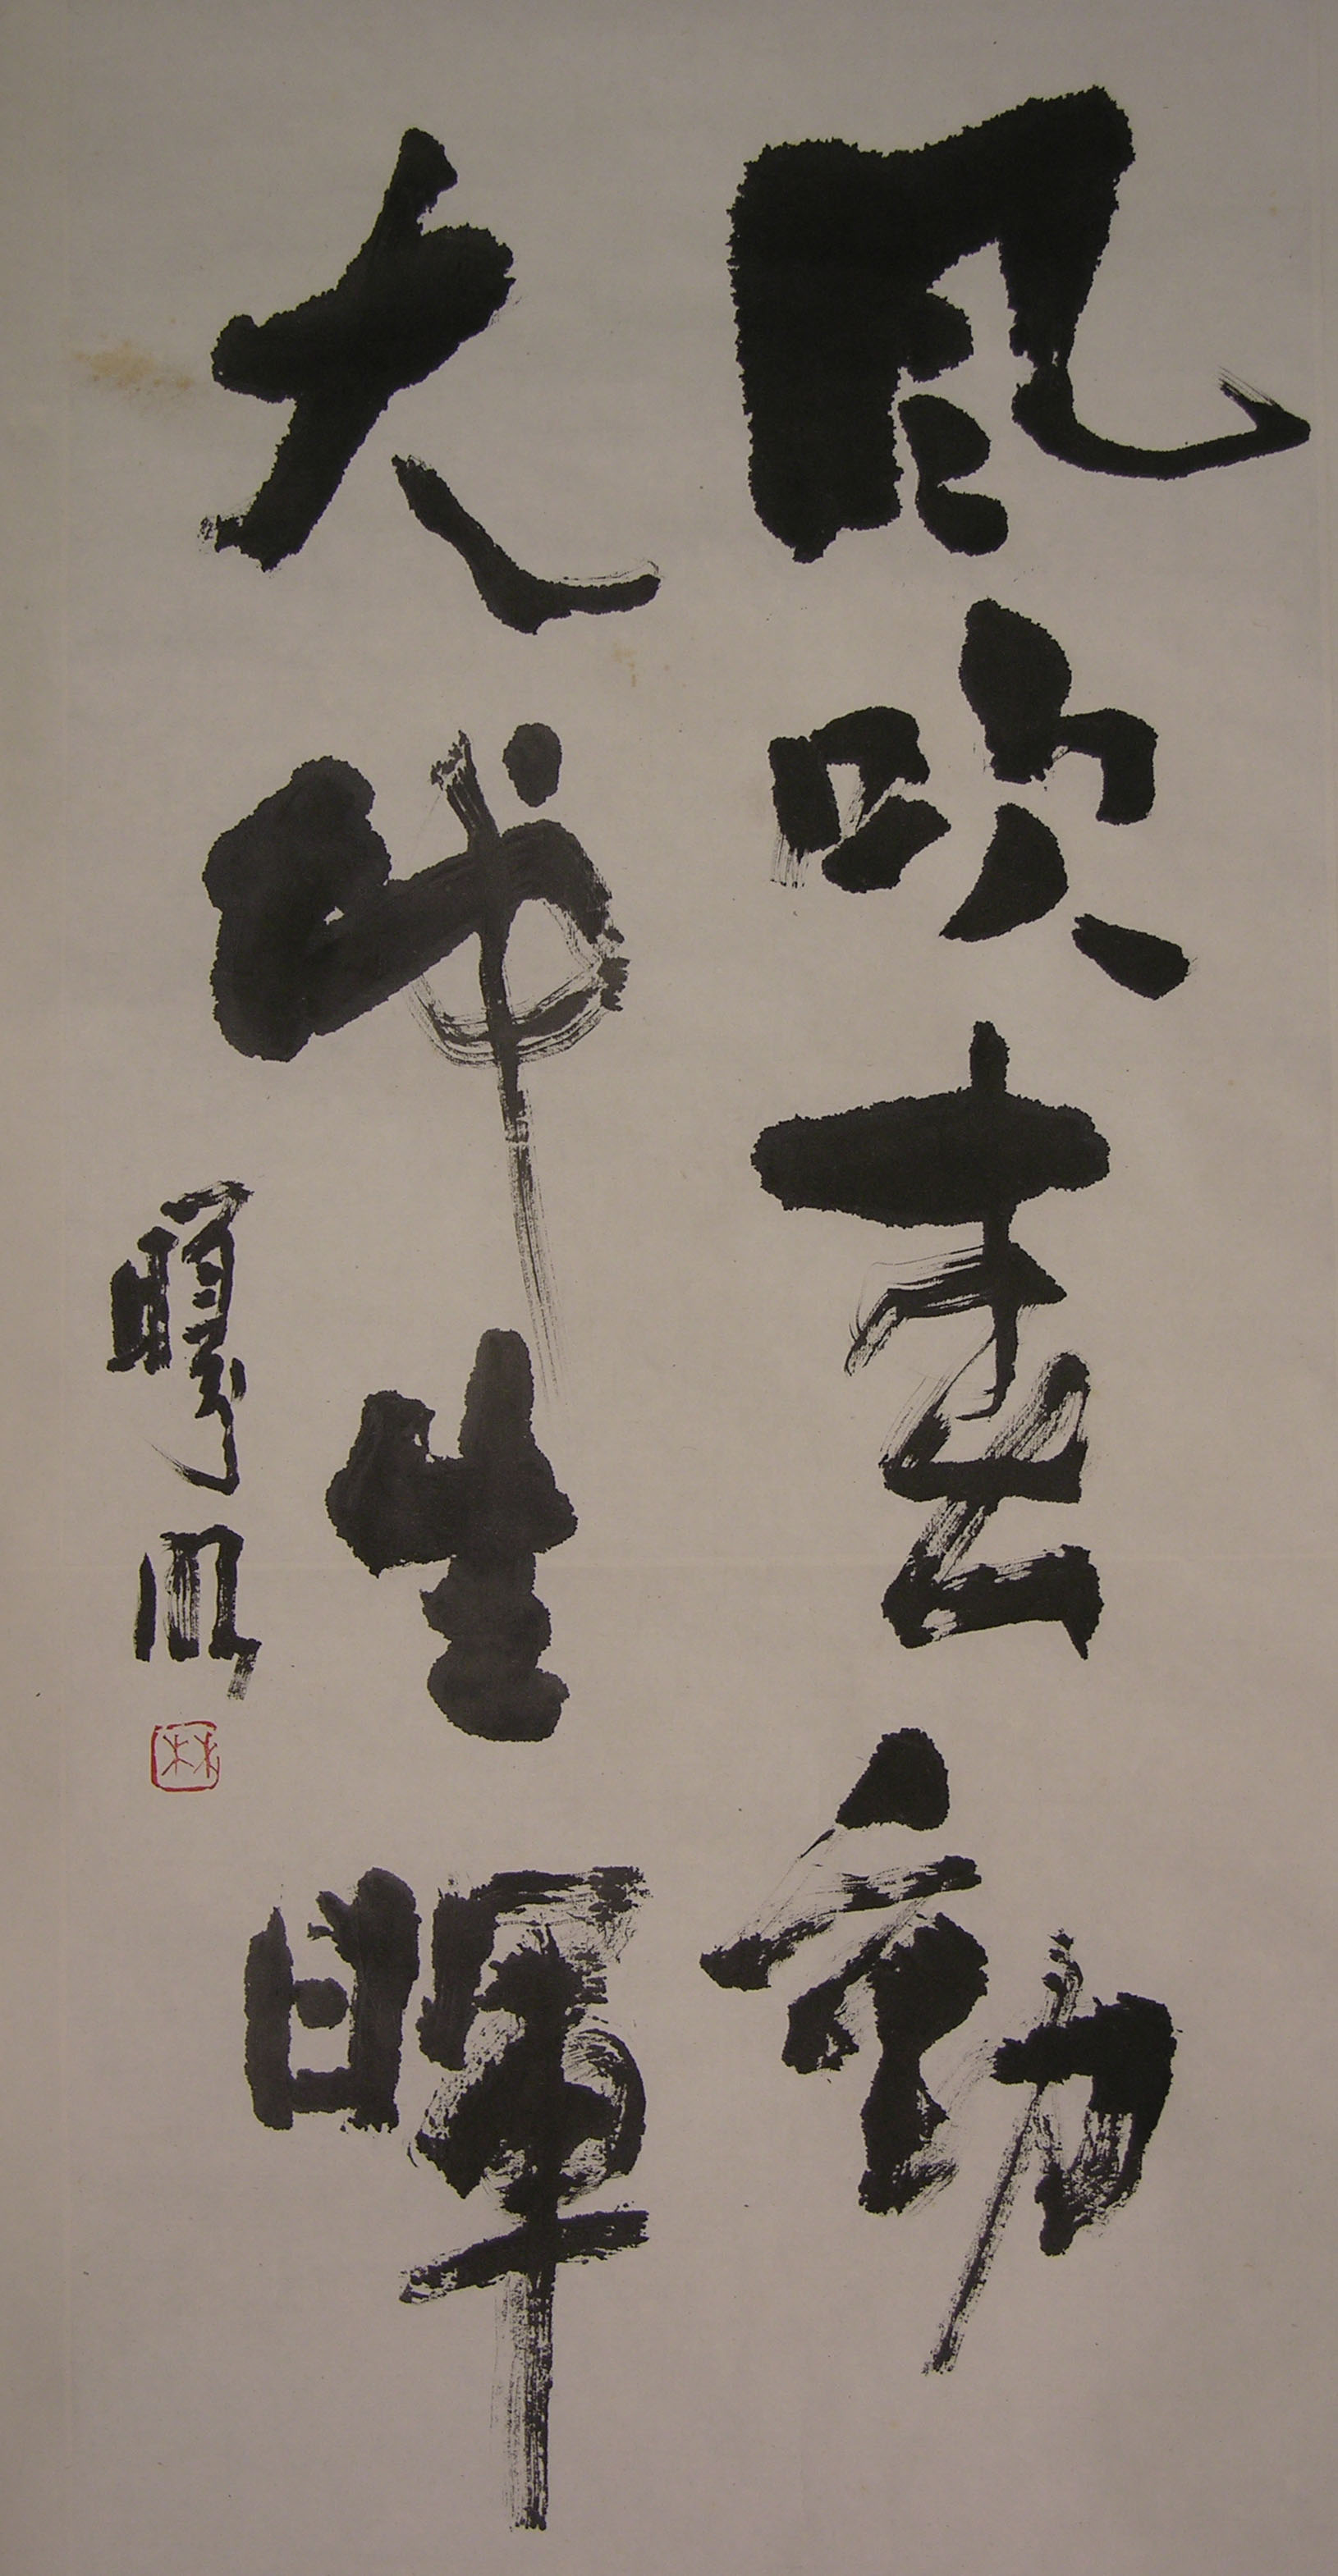 風吹雲動
大地生暉
林